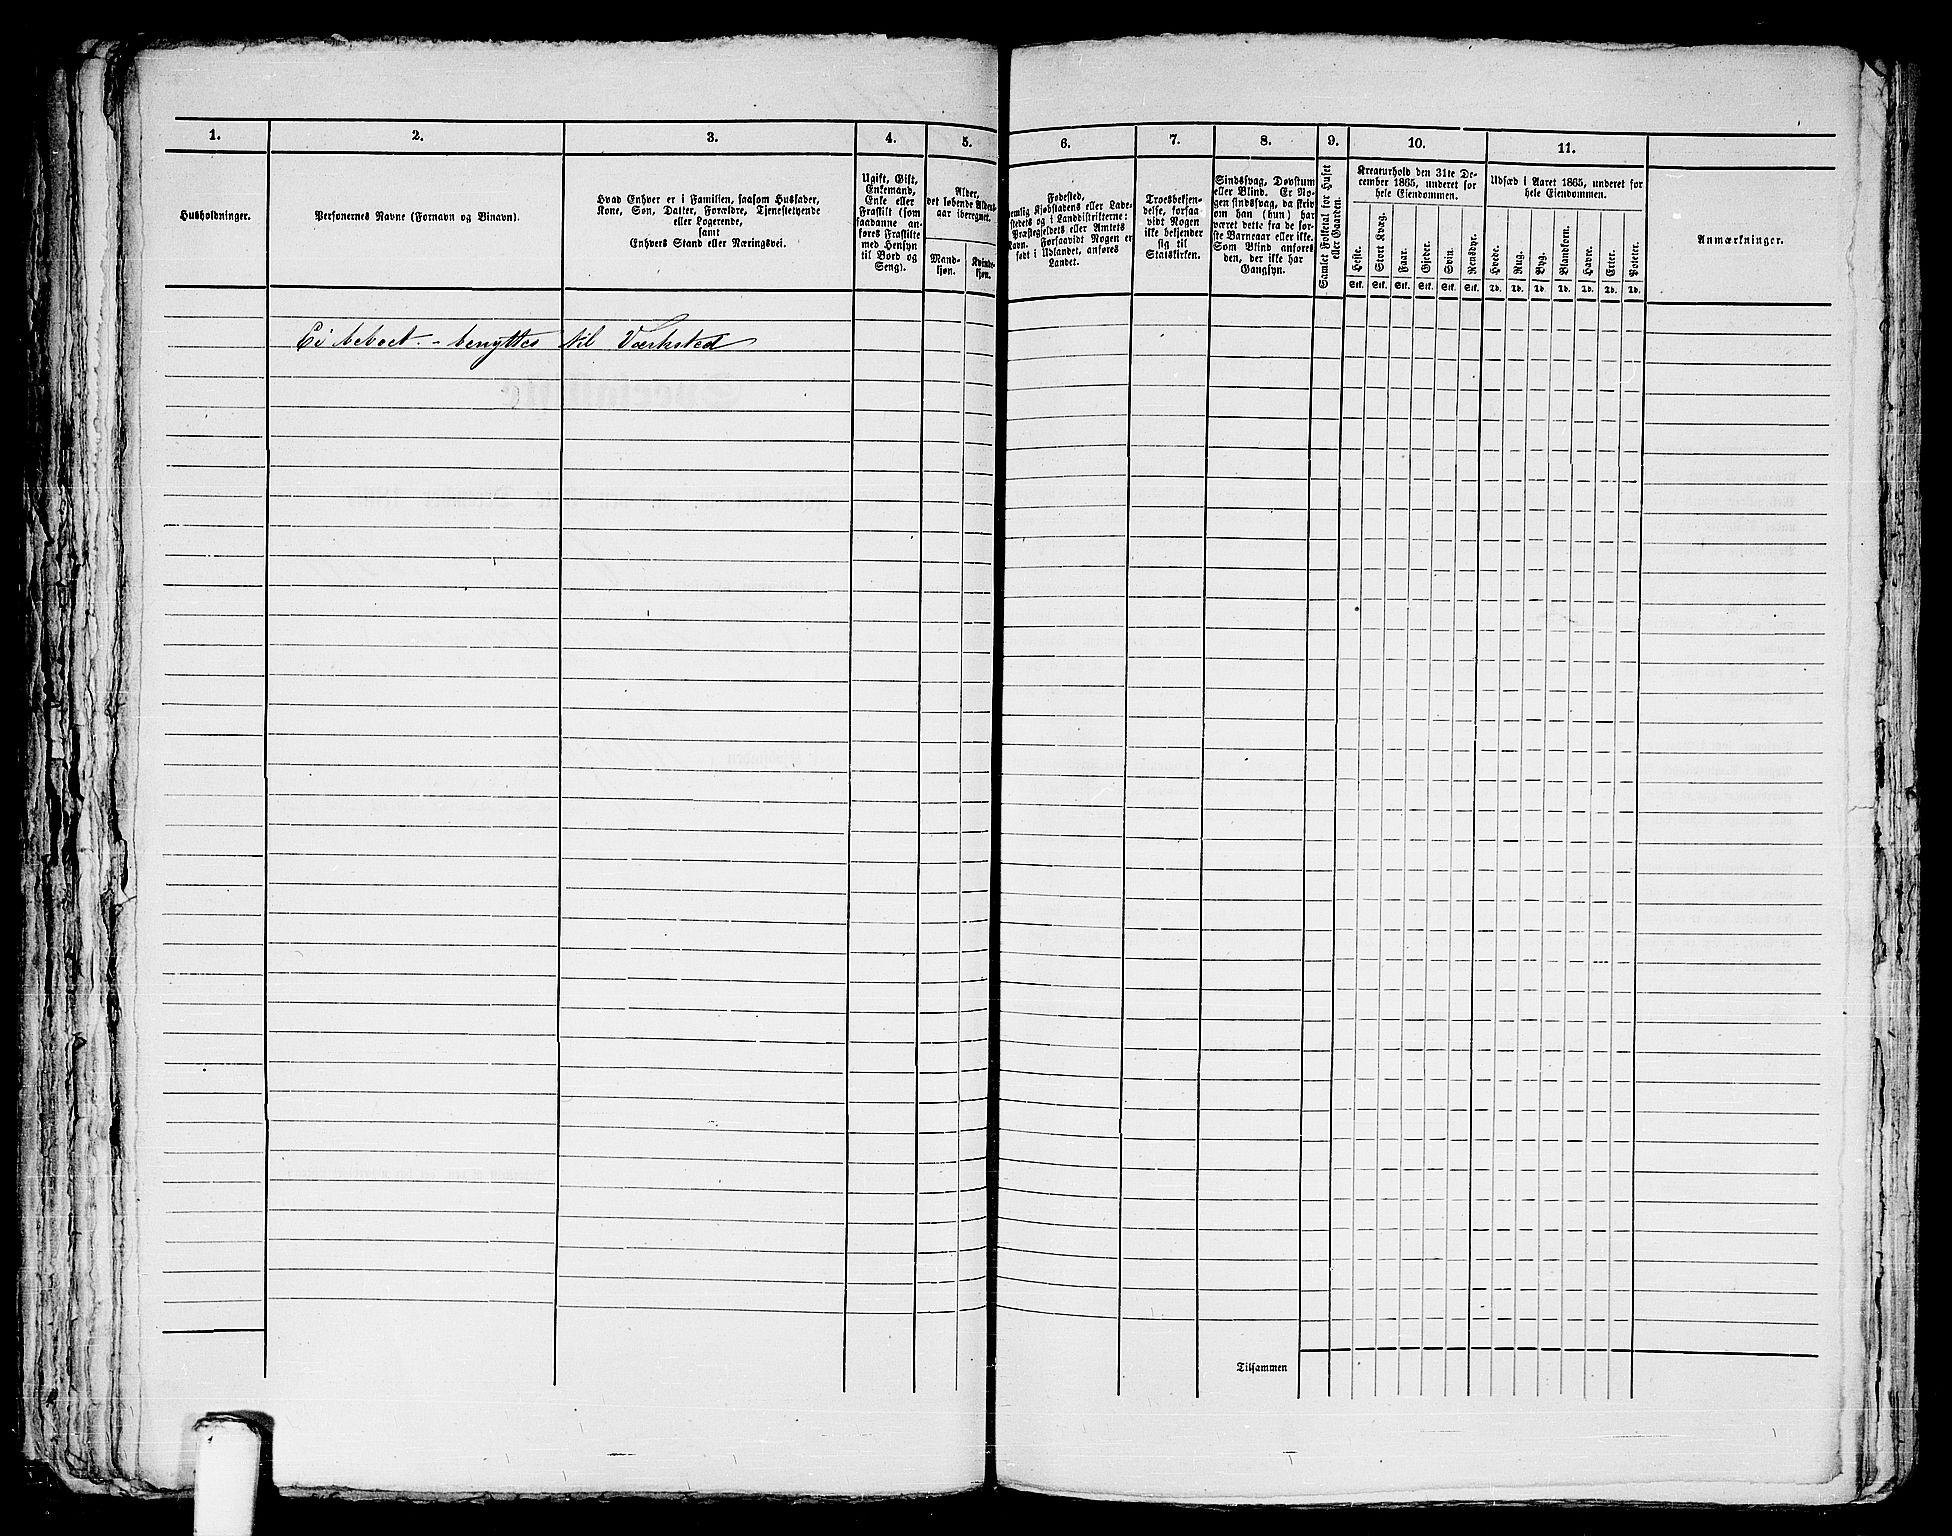 1.
2.
3.
4.
5.
6.
7.
8.
9.
10.
11.
Husholdninger.
Personernes Navne (Fornavn og Binavn).
Hvad Enhver er i Familien, saasom Husfader,
Kone, Søn, Datter, Forældre, Tjenestetyende
eller Logerende,
samt
Enhvers Stand eller Næringsvei.
Ugift, Gift,
Enkemand,
Enke eller
Fraskilt (som
saadanne an-
føres Fraskilte
med Hensyn
til Bord og
Seng).
Alder,
det løbende Alders-
aar iberegnet.
Mand-
kjøn.
Kvinde-
kjøn.
Fødested,
nemlig Kjøbstadens eller Lade-
stedets og i Landdistrikterne:
Præstegjeldets eller Amtets
Navn. Forsaavidt Nogen er
født i Udlandet, anføres
Landet.
Troesbekjen-
delse, forsaa-
vidt Nogen
ikke bekjender
sig til
Statskirken.
Sindssvag, Døvstum
eller Blind. Er No-
gen sindssvag, da skriv
om han (hun) har
været dette fra de før-
ste Barneaar eller ikke.
Som Blind anføres
den, der ikke har
Gangsyn.
Samlet Folketal for Huset
eller Gaarden.
Kreaturhold den 31te De-
cember 1865, underet for
hele Eiendommen.
Heste.
Stort Kvæg.
Faar.
Gjeder.
Svin.
Rensdyr.
Stk.
Stk.
Stk.
Stk.
Stk.
Stk.
Udsæd i Aaret 1865, underet for
hele Eiendommen.
Hvede.
Rug.
Byg.
Blandkorn.
Havre.
Erter.
Poteter.
Td.
Td.
Td.
Td.
Td.
Td.
Td.
Anmærkninger.
Ei beboet - benyttes til Værksted
Tilsammen